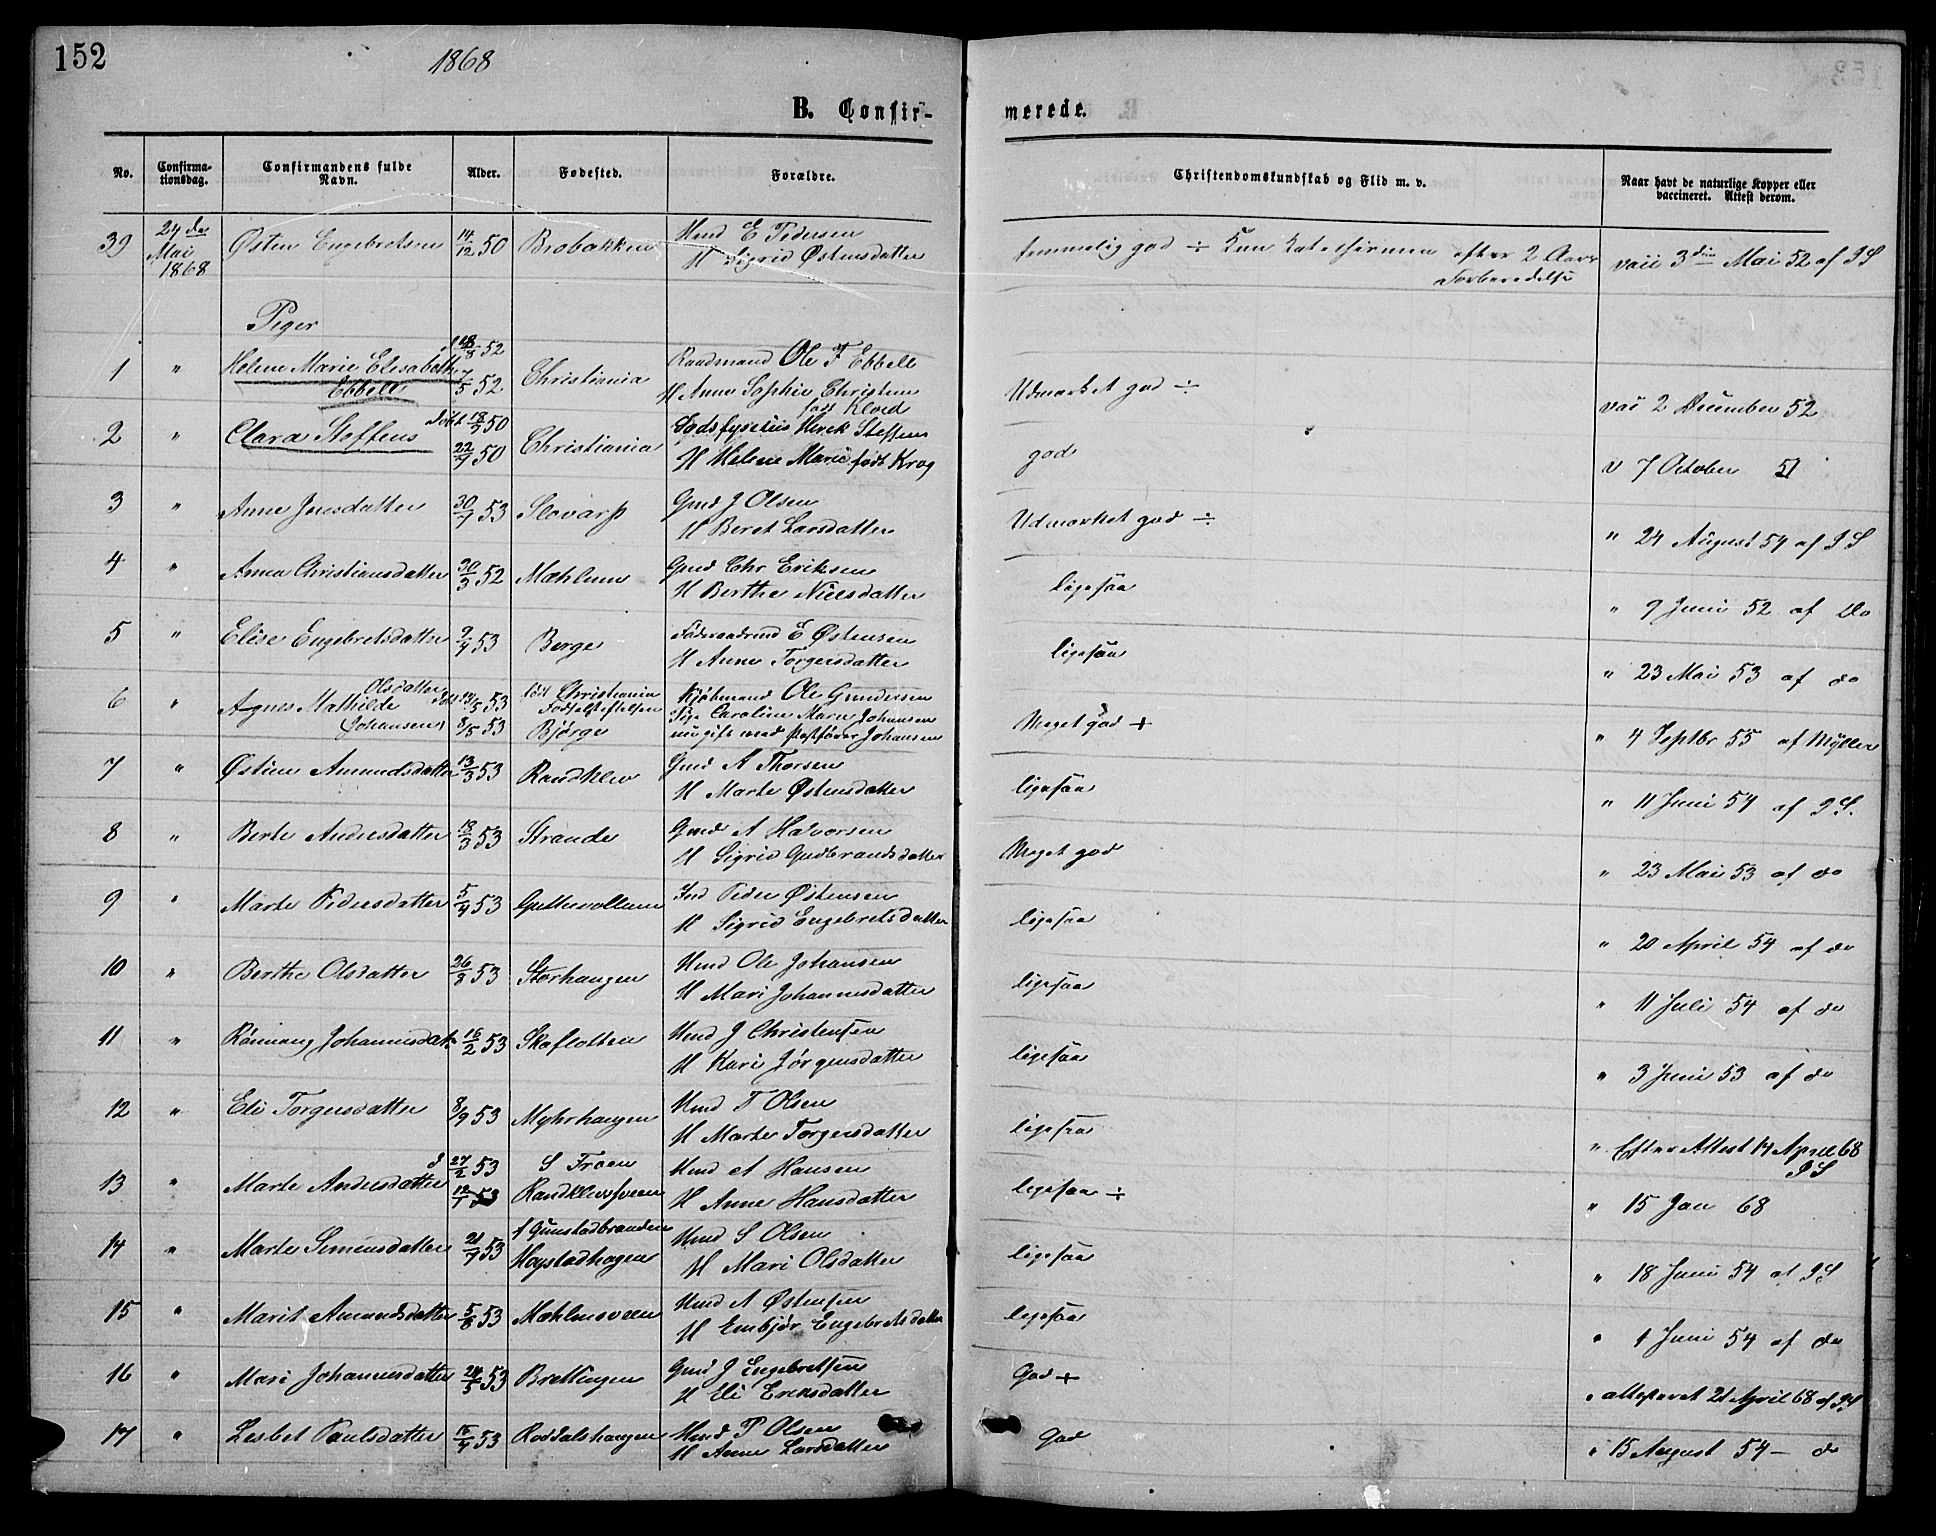 152
1868
B. Confir-
merede.
No.
Confirma-
tionsdag.
Confirmandens fulde
Navn.
Alder.
Fødested.
Forældre.
Christendomskundskab og Flid m. v.
Naar havt de naturlige Kopper eller
vaccineret. Attest derom.
39 24de Mai 1868 Østen Engebretsen 14/12 50 Brobakken
Hmd E Pedersen
H Sigrid Østensdatter
temmelig god ÷ Kun efter 2 Aars
Forberedelse
3die Mai 52 af
Piger
1 " Helene Marie Elisabeth
Ebbell
18/8 52
7/5 52 Christiania
Raadmand Ole F Ebbell
H Anna Sophie Christine
født
Udmærket god ÷
vac 2 December 52
2 " Clara Steffens
døbt 18/9 50
22/7 50 Christiania
Henrik Steffens
H Helene Marie født Krog
god
v 7 October 51
3 " Anne Jensdatter 30/7 53
Gmd J Olsen
H Beret Larsdatter
Udmærket god ÷
" 24 August 54 af
4 " Anna Christiansdatter 30/3 52 Mæhlum
Gmd Chr Eriksen
H Berthe Nielsdatter
ligesaa
" 9 Juni 52 af Do
5 " Elise Engebretsdatter 9/4 53 Berge
Føderaadmd E Østensen
H Anne Torgersdatter
ligesaa
" 23 Mai 53 af do
6 " Agnes Mathilde Olsdatter
(Johansen)
53
8/5 53
Christiania
Fødselsstiftelsen
Bjørge
Kjøbmand Ole Gundersen
Pige Caroline Marie Johansen
nu gift med Johansen
Meget god +
" 4 Septbr 55 af Myller
7 " Østine Amundsdatter 13/3 53 Randklev
Gmd A Thorsen
H Marte Østensdatter
ligesaa
" 11 Juni 54 af
8 " Berte Andersdatter 18/3 53 Strande
Gmd A Halvorsen
H Sigrid Gudbrandsdatter
Meget god
" 23 Mai 53 af do
9 " Marte Pedersdatter 5/4 53 Guttevollene
Ind Peder Østensen
H Sigrid Engebretsdatter
ligesaa
" 20 April 54 af do
10 " Berthe Olsdatter 26/8 53 Storhaugen
Hmd Ole Johansen
H Mari Johannesdatter
ligesaa
" 11 Juli 54 af do
11 " Rønnaug Johannesdatt 16/2 53 Skaflotten
Hmd J Christensen
H Kari Jørgensdatter
ligesaa
" 3 Juni 53 af do
12 " Eli Torgersdatter 8/9 53 Myhrhaugen
Hmd T Olsen
H Marte Torgersdatter
ligesaa
" Efter Attest 14 April 68
13 " Marte Andersdatter
27/2 53
12/1 53
S Froen
Randklevsveen
Hmd A Hansen
H Anne Hansdatter
ligesaa ÷
" 15 Jan 68
14 " Marte Simensdatter 21/7 53
f Gunstadbranden
Haystadhagen
Hmd S Olsen
H Mari Olsdatter
ligesaa
" 18 Juni 54 af
15 " Marit Amundsdatter 5/8 53 Mæhlumsveen
Hmd A Østensen
H Embjør Engebretsdatter
ligesaa
" 4 Juni 54 af do
16 " Mari Johannesdatter 24/5 53 Brettingen
Gmd J Engebretsen
H Eli Eriksdatter
God +
" attesteret 21 April 68 af
17 " Lisbet Paulsdatter 15/7 53 Roddalshaugen
Hmd P Olsen
H Anne Larsdatter
God
" 15 August 54 — do